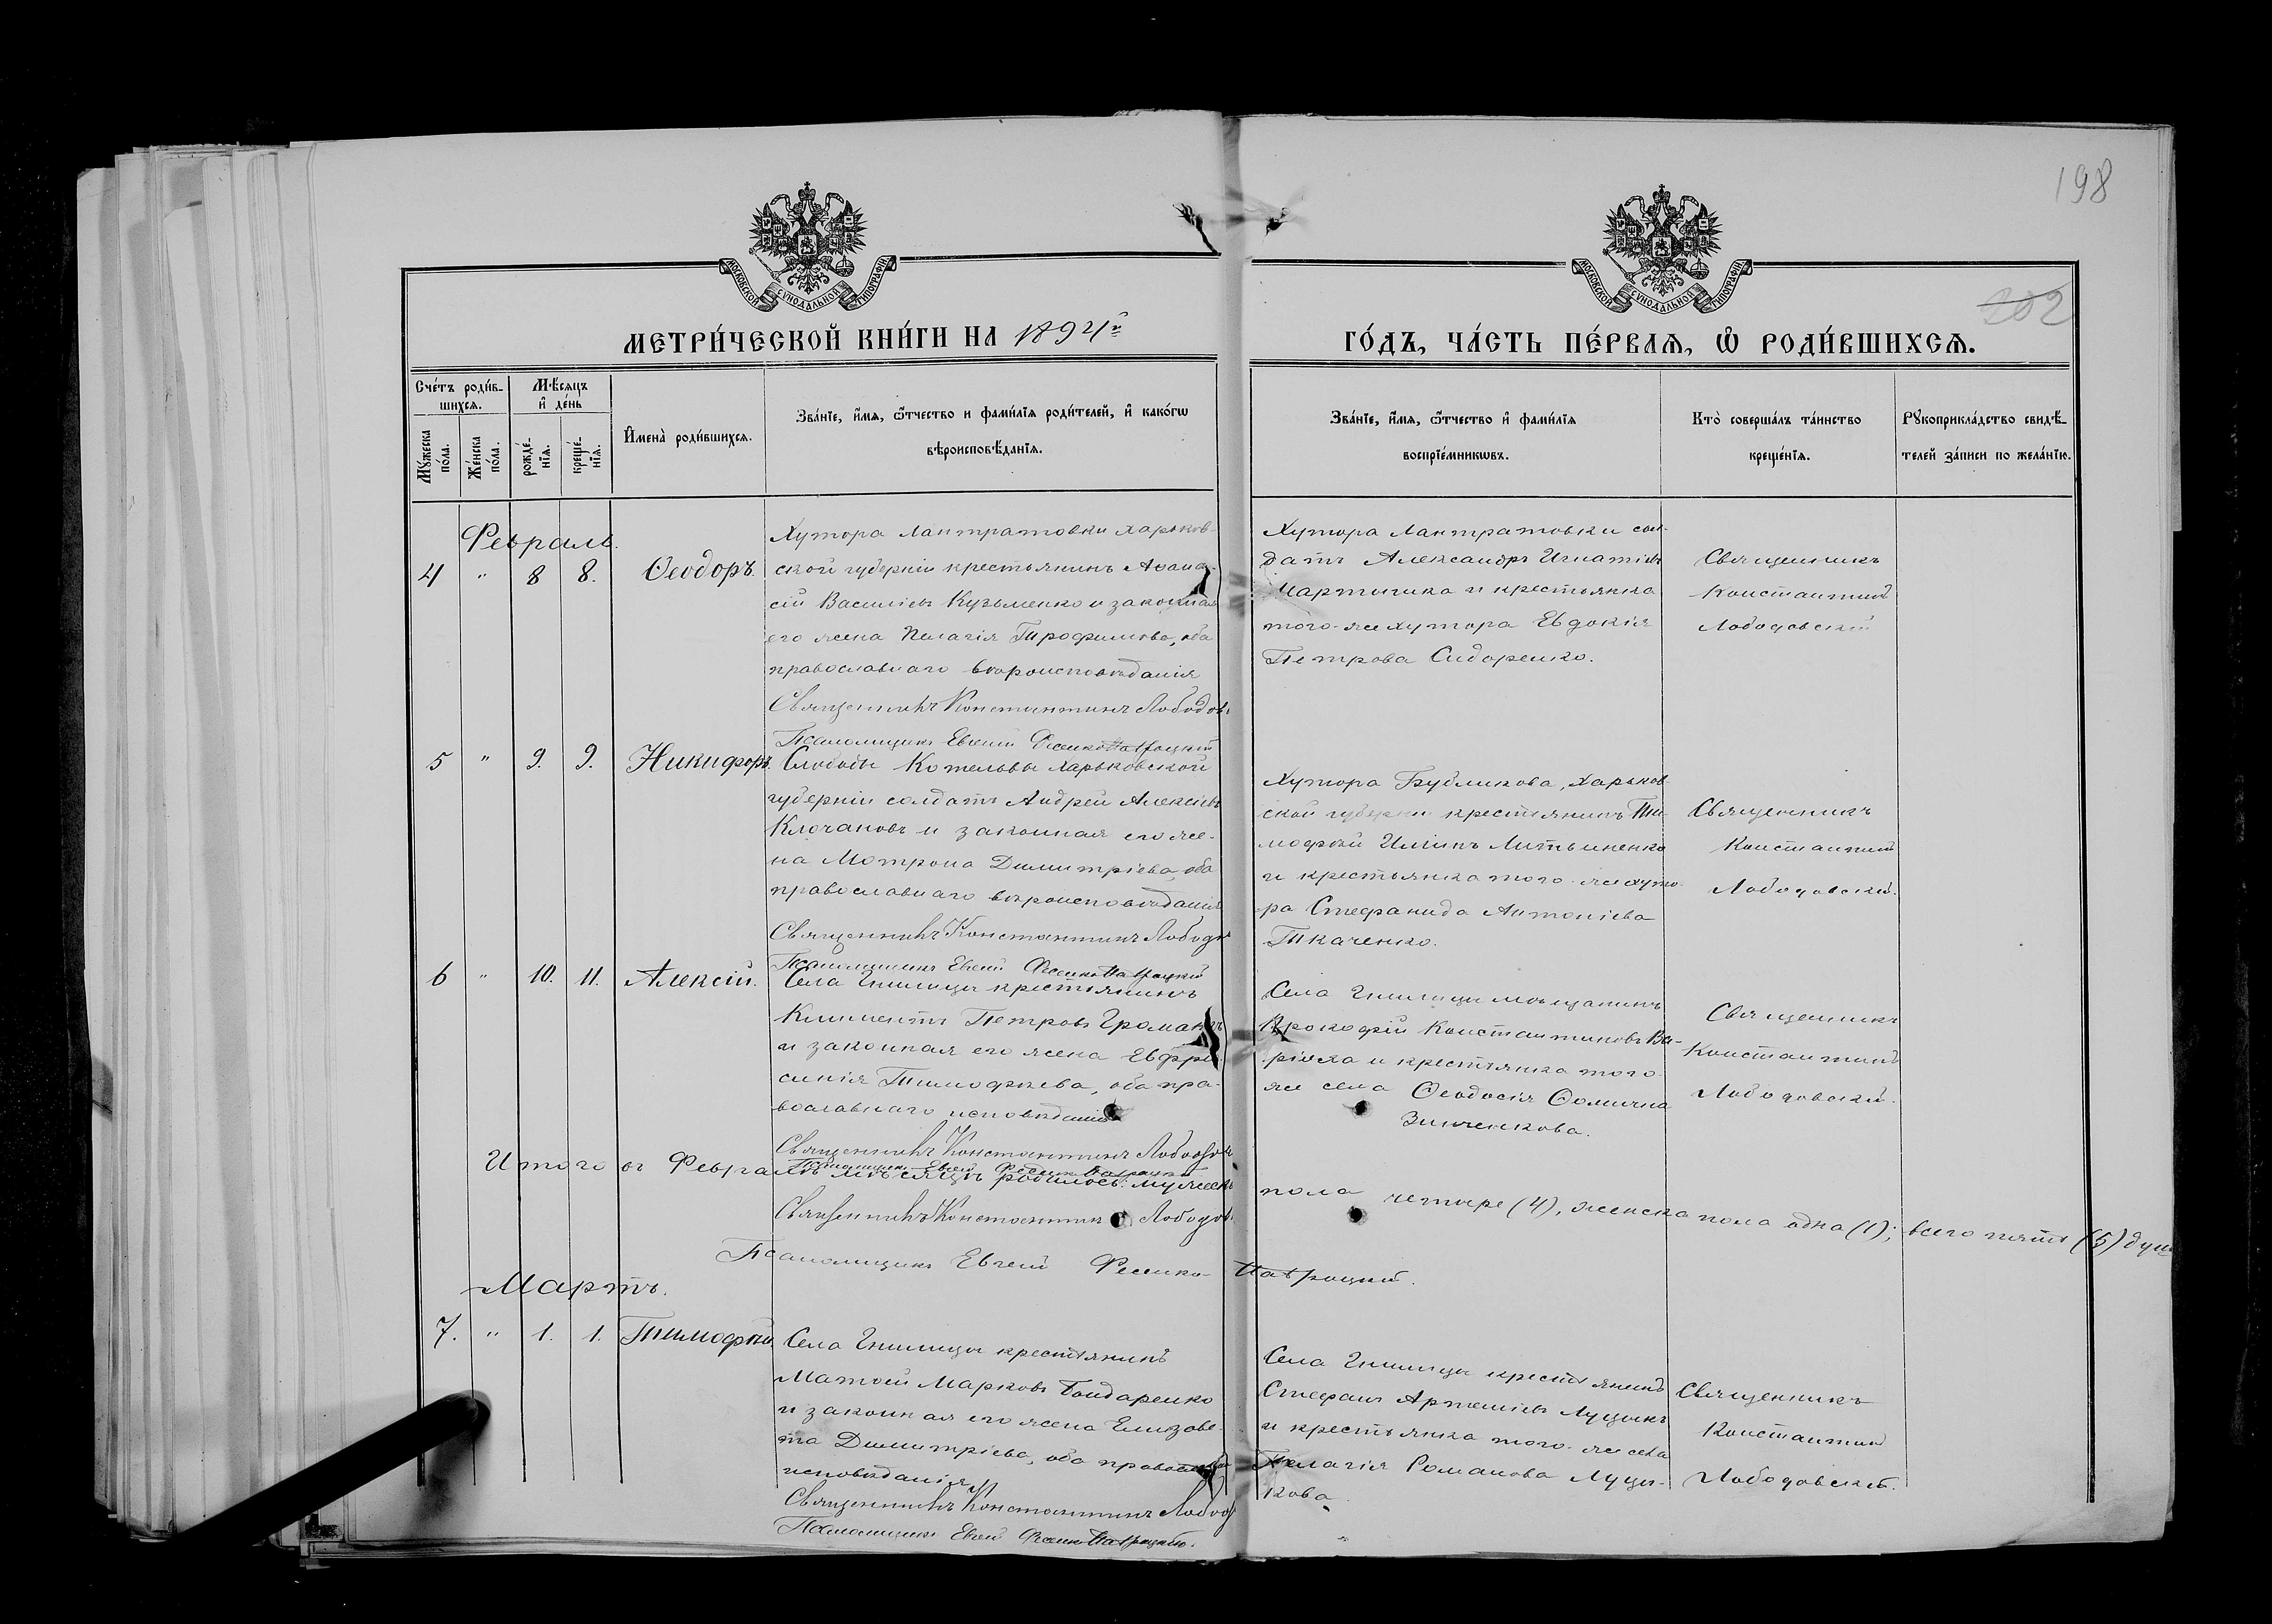 198
202
МОСКОВСКОЙ СУНОДАЛЬНОЙ ТИПОГРАФІИ
МОСКОВСКОЙ СУНОДАЛЬНОЙ ТИПОГРАФІИ
МЕТРИ́ЧЕСКОЙ КНИ́ГИ НА 1894й
ГО́ДЪ, ЧА́СТЬ ПЕ́РВАѦ, Ѡ РОДИ́ВШИХСѦ.
Сче́тъ роди́в-
шихсѧ.
Мꙋ́жеска
по́ла.
Же́нска
по́ла.
Мѣ́сѧцъ
и҆ де́нь
рожде́-
нїѧ.
креще́-
нїѧ.
И҆мена̀ роди́вшихсѧ.
Зва́нїе, и҆́мѧ, ѻ҆́тчество и фами́лїѧ роди́телей, и҆ како́гѡ
вѣроисповѣ́данїѧ.
Зва́нїе, и҆́мѧ, ѻ҆́тчество и҆ фами́лїѧ
воспрїе́мникѡвъ.
Кто̀ соверша́лъ та́инство
креще́нїѧ.
Рꙋкоприкла́дство свидѣ́-
телей за́писи по жела́нїю.
Февраль.
4 " 8 8. Ѳеодоръ.
Хутора Лантратовки Харьков-
ской губерніи крестьянинъ Аѳана-
сій Василіевъ Кузьменко и законная
его жена Пелагія Трофимова, оба
православнаго вѣроисповѣданія
Священникъ Константинъ Лободов
Псаломщикъ Евгеній Фесенко-Навроцкій
Хутора Лантратовки сол-
датъ Александръ Игнатіевъ
Мартыщка и крестьянка
того-же хутора Евдокія
Петрова Сидоренко.
Священникъ
Константинъ
Лободовскій
5 " 9. 9. Никифоръ.
Слободы Котельвы Харьковской
губерніи солдатъ Андрей Алексіевъ
Клочановъ и законная его же-
на Мотрона Димитріева, оба
православнаго вѣроисповѣданія
Священникъ Константинъ Лободо
Псаломщикъ Евгеній Фесенко-Навроцкій
Хутора Бубликова, Харьков-
ской губерніи крестьянинъ Ти-
мофей Иліинъ Литвиненко
и крестьянка того-же хуто-
ра Стефанида Антоніева
Ткаченко.
Священникъ
Константинъ
Лободовскій.
6 " 10. 11. Алексій.
Села Гнилицы крестьянинъ
Климентъ Петровъ Громакъ
и законная его жена Евфро-
синія Тимофеева, оба пра-
вославнаго исповѣданія
Священникъ Константинъ Лободов
Псаломщикъ Евгеній Фесенко-Навроцкій
Села Гнилицы мѣщанинъ
Прокофій Константиновъ Ва-
и крестьянка того-
же села Ѳеодосія Ѳомична
Зинченкова.
Священникъ
Константинъ
Лободовскій.
Итого въ Февралѣ мѣсяцѣ родилось: мужеска пола четыре (4), женска пола одна (1); всего пять (5) душ
Священникъ Константинъ Лободов
Псаломщикъ Евгеній Фесенко-Навроцкій.
Мартъ.
7. " 1. 1. Тимофей.
Села Гнилицы крестьянинъ
Матѳей Марковъ Бондаренко
и законная его жена Елизаве-
та Димитріева, оба православнаго
исповѣданія
Священникъ Константинъ Лободо
Псаломщикъ Евгеній Фесенко-Навроцкій.
Села Гнилицы крестьянинъ
Стефанъ Артеміевъ Луцыкъ
и крестьянка того-же села
Пелагія Романова Луцы-
кова.
Священникъ
Константинъ
Лободовскій.